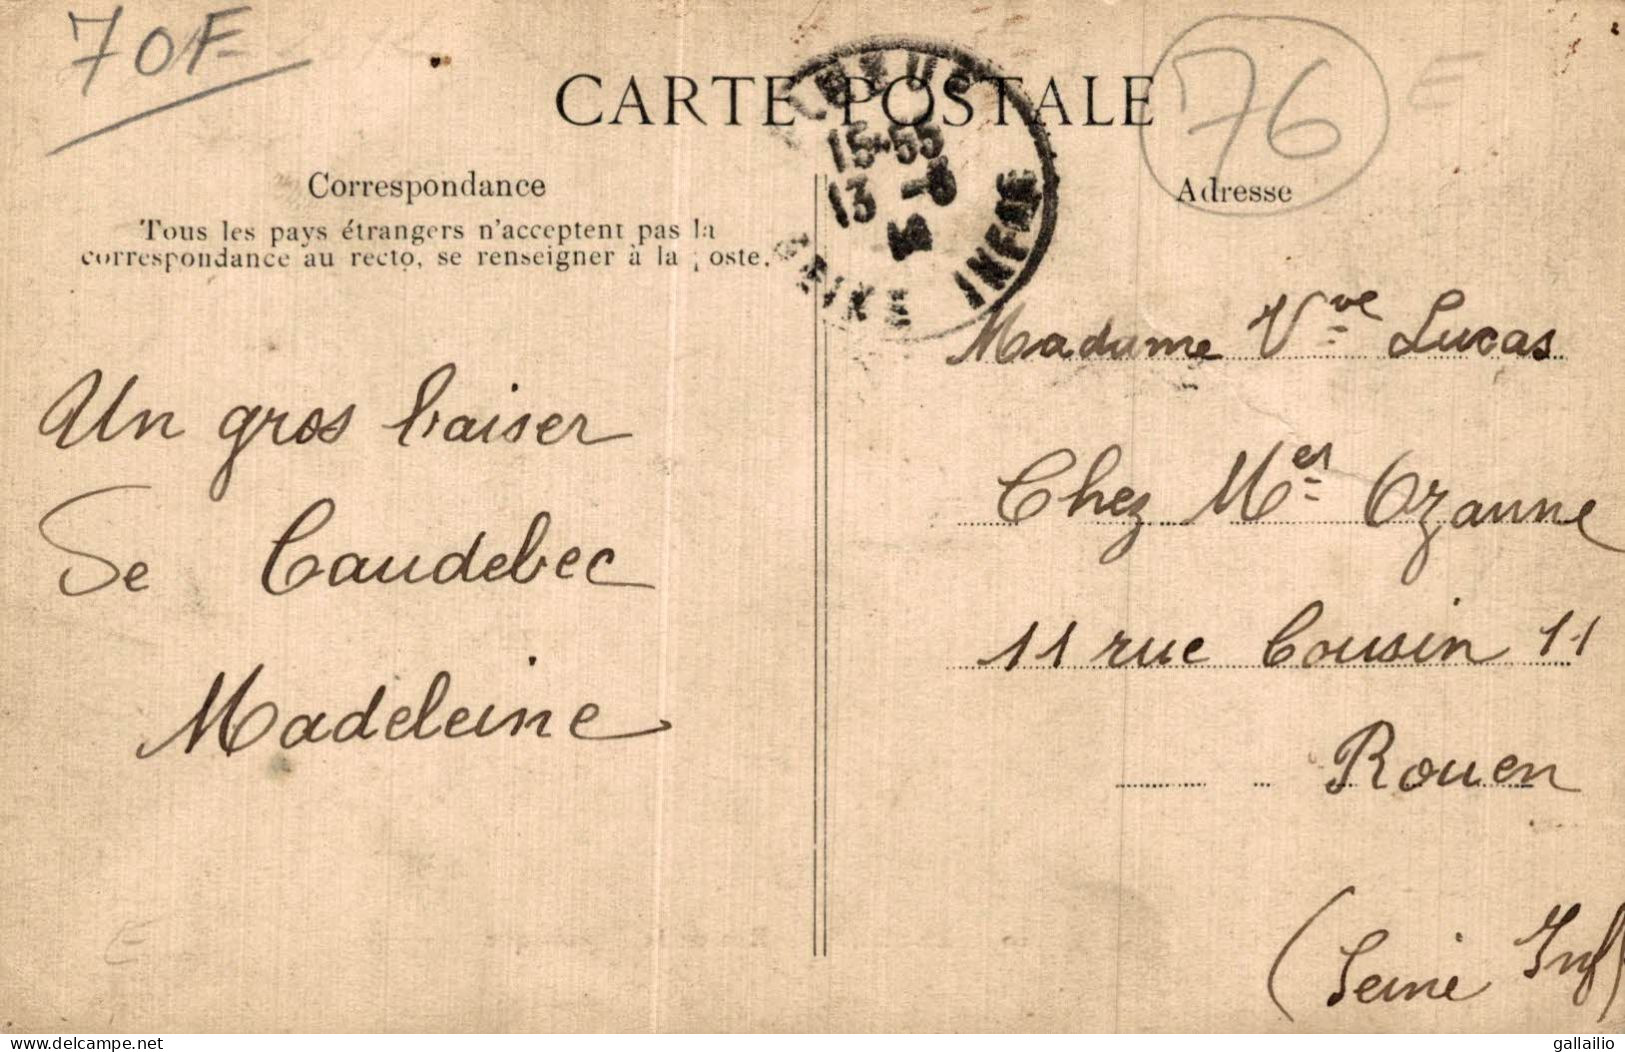 70F
CARTE POSTALE
76
E
15-55
13 -8
SEINE INFRE
Correspondance
Tous les pays étrangers n'acceptent pas la
correspondance au recto, se renseigner à la poste.
Adresse
Un gros baiser
De Caudebec
Madeleine
Madame Vve Lucas
Chez Mer Ozanne
11 rue Cousin 11
Rouen
(Seine Inf)
E
www.delcampe.net
gallailio